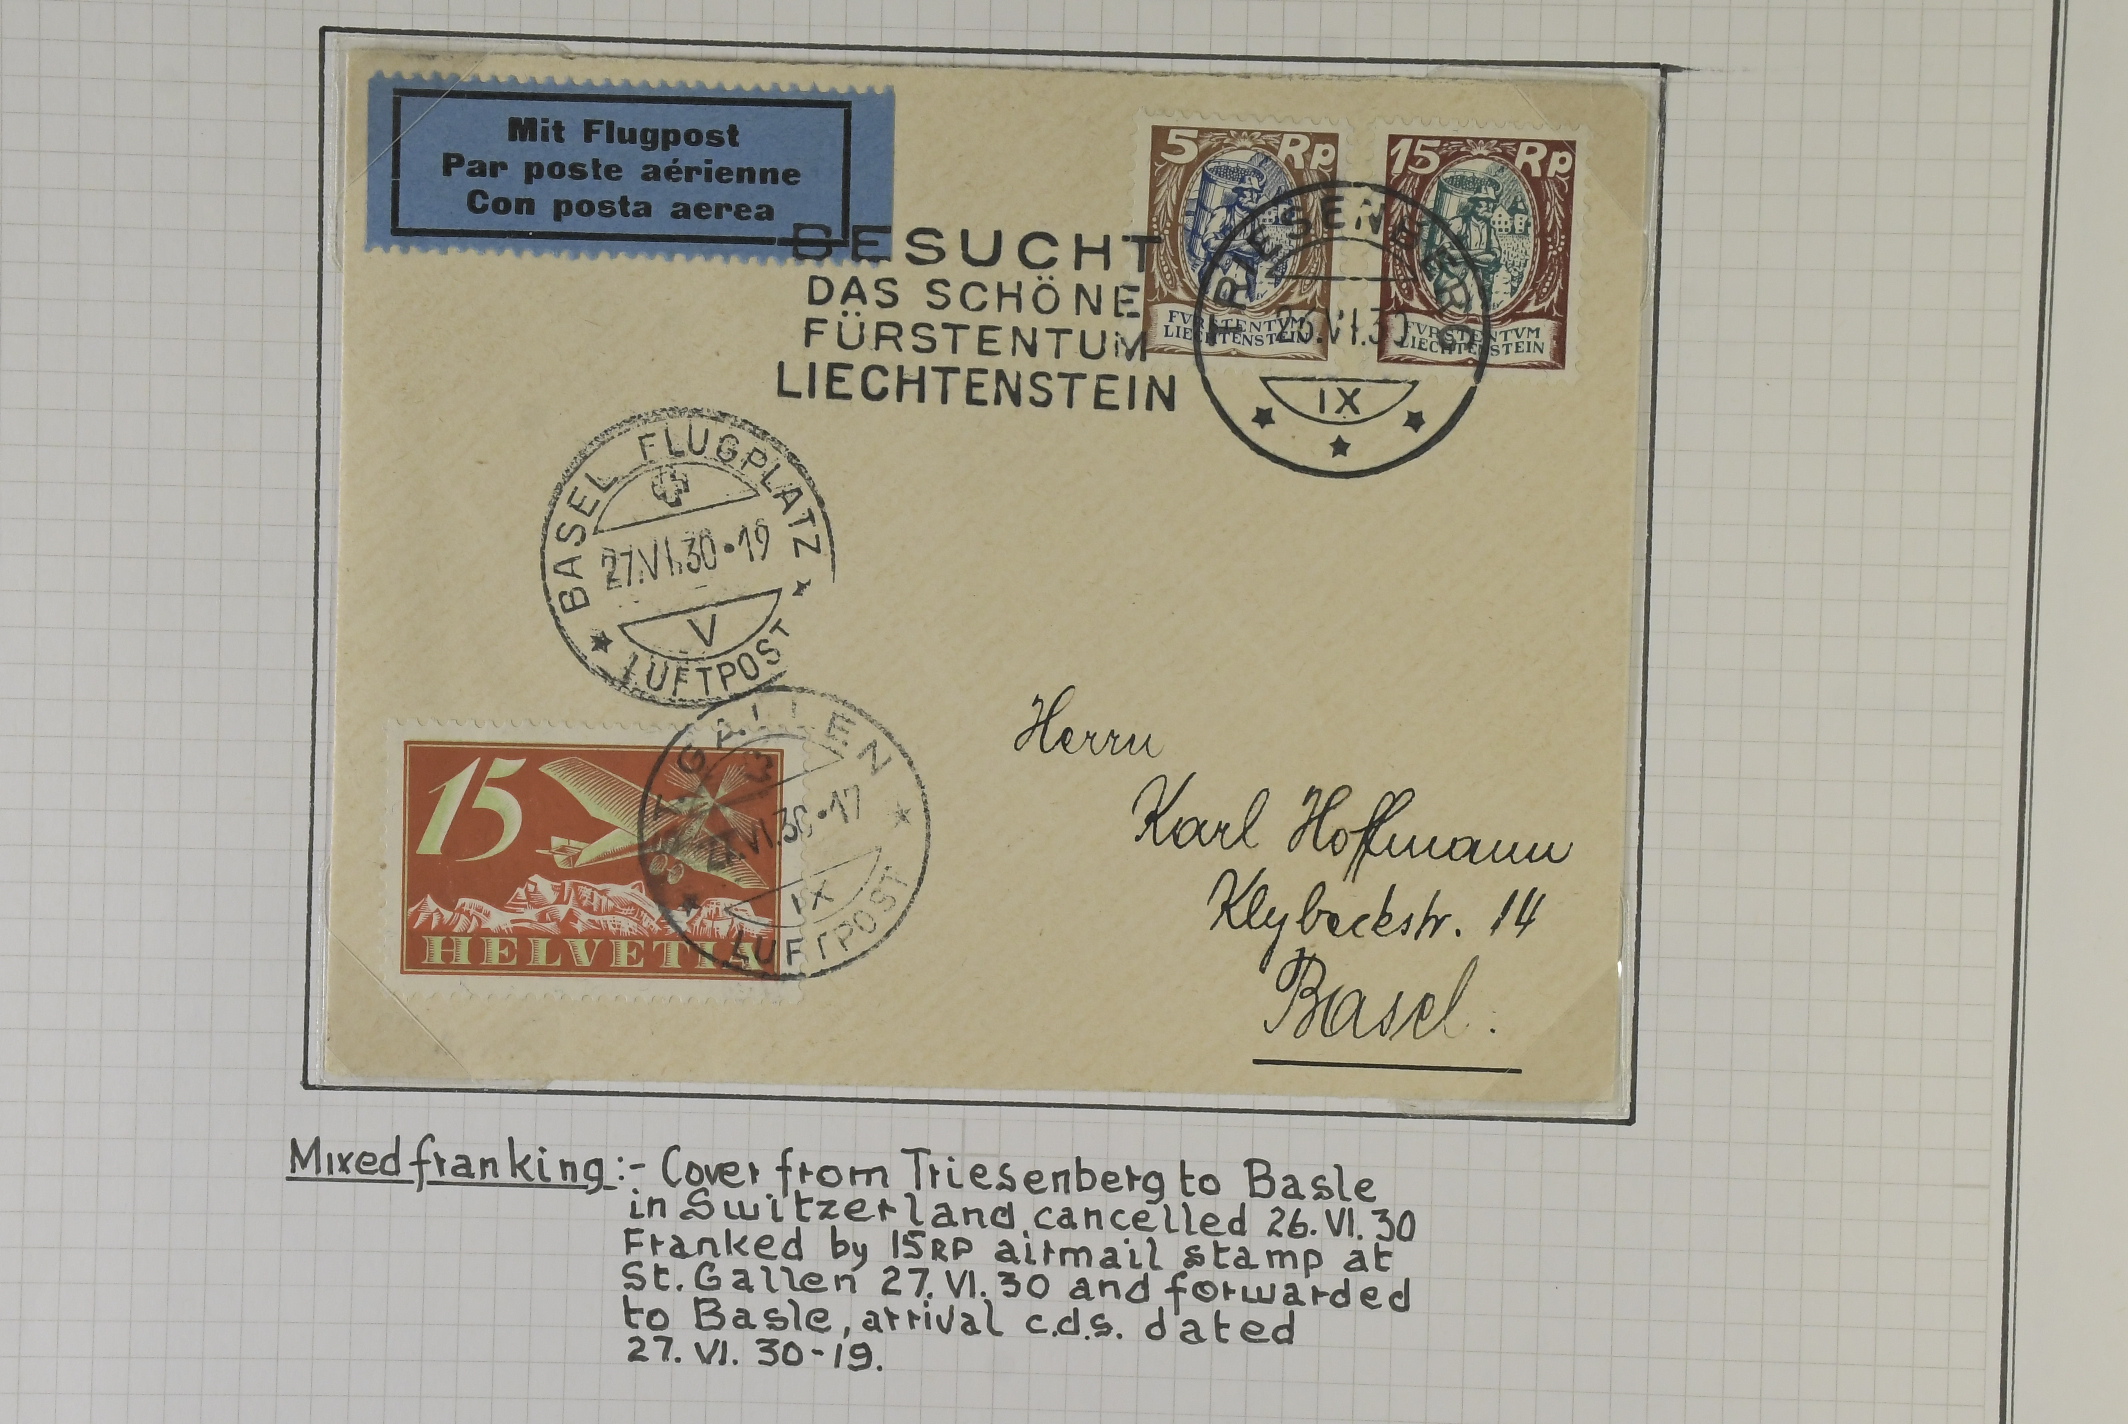 Mit Flugpost
Par poste aérienne
Con posta aerea
5 Rp
FVRSTENTVM
LIECHTENSTEIN
15 Rp
FVRSTENTVM
LIECHTENSTEIN
TRIESENBERG
26.VI.30
IX
BESUCHT
DAS SCHÖNE
FÜRSTENTUM
LIECHTENSTEIN
BASEL FLUGPLATZ
27.VI.30•19
V
LUFTPOST
ST. GALLEN
27.VI.30•17
IX
LUFTPOST
15
HELVETIA
Herrn
Karl Hoffmann
Klybeckstr. 14
Basel.
Mixed franking:- Cover from Triesenberg to Basle
in Switzerland cancelled 26. VI. 30
Franked by 15RP airmail stamp at
St. Gallen 27. VI. 30 and forwarded
to Basle, arrival c.d.s. dated
27. VI. 30-19.